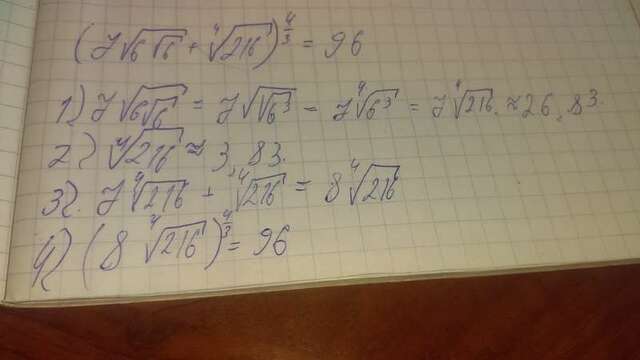 (7√(6√6) + ⁴√216)^(4/3) = 96
1) 7√(6√6) = 7√(√6³) = 7 ⁴√6³ = 7 ⁴√216 ≈ 26,83.
2) ⁴√216 ≈ 3,83.
3) 7 ⁴√216 + ⁴√216 = 8 ⁴√216
4) (8 ⁴√216)^(4/3) = 96